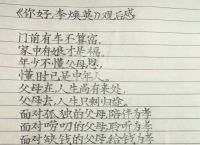 《你好,李焕英》观后感
门前有车不算富,
家中有娘才是福。
年少不懂父母恩,
懂时已是中年人。
父母在,人生尚有来处,
父母去,人生只剩归途。
面对孤独的父母,陪伴为孝
面对唠叨的父母,聆听为孝
面对缺钱的父母,给钱为孝